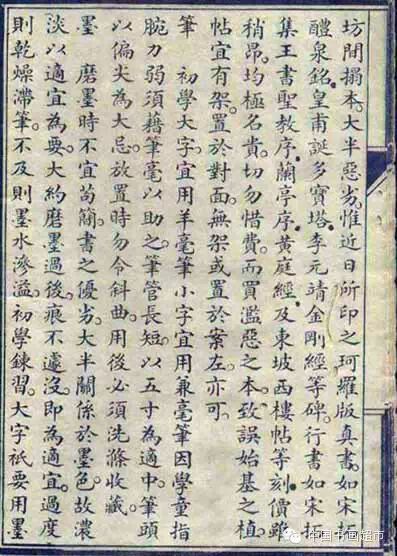 坊間搨本。大半惡劣。惟近日所印之珂羅版真書。如宋拓
醴泉銘。皇甫誕多寶塔。李元靖金剛經等碑。行書如宋拓
集王書聖教序。蘭亭序。黃庭經。及東坡西樓帖等刻。價雖
稍昂。均極名貴。切勿惜費。而買濫惡之本。致誤始基之植。
帖宜有架。置於對面。無架或置於案左。亦可。
筆　初學大字。宜用羊毫筆。小字宜用兼毫筆。因學童指
腕力弱。須藉筆毫以助之。筆管長短。以五寸為適中。筆頭
以偏尖為大忌。放置時勿令斜曲。用後必須洗滌收藏。
墨　磨墨時不宜苟簡。書之優劣。大半關係於墨色。故濃
淡以適宜為要。大約磨墨過後。痕不遽沒。即為適宜。過度
則乾燥滯筆。不及則墨水滲溢。初學鍊習。大字祇要用墨
中国书画超市